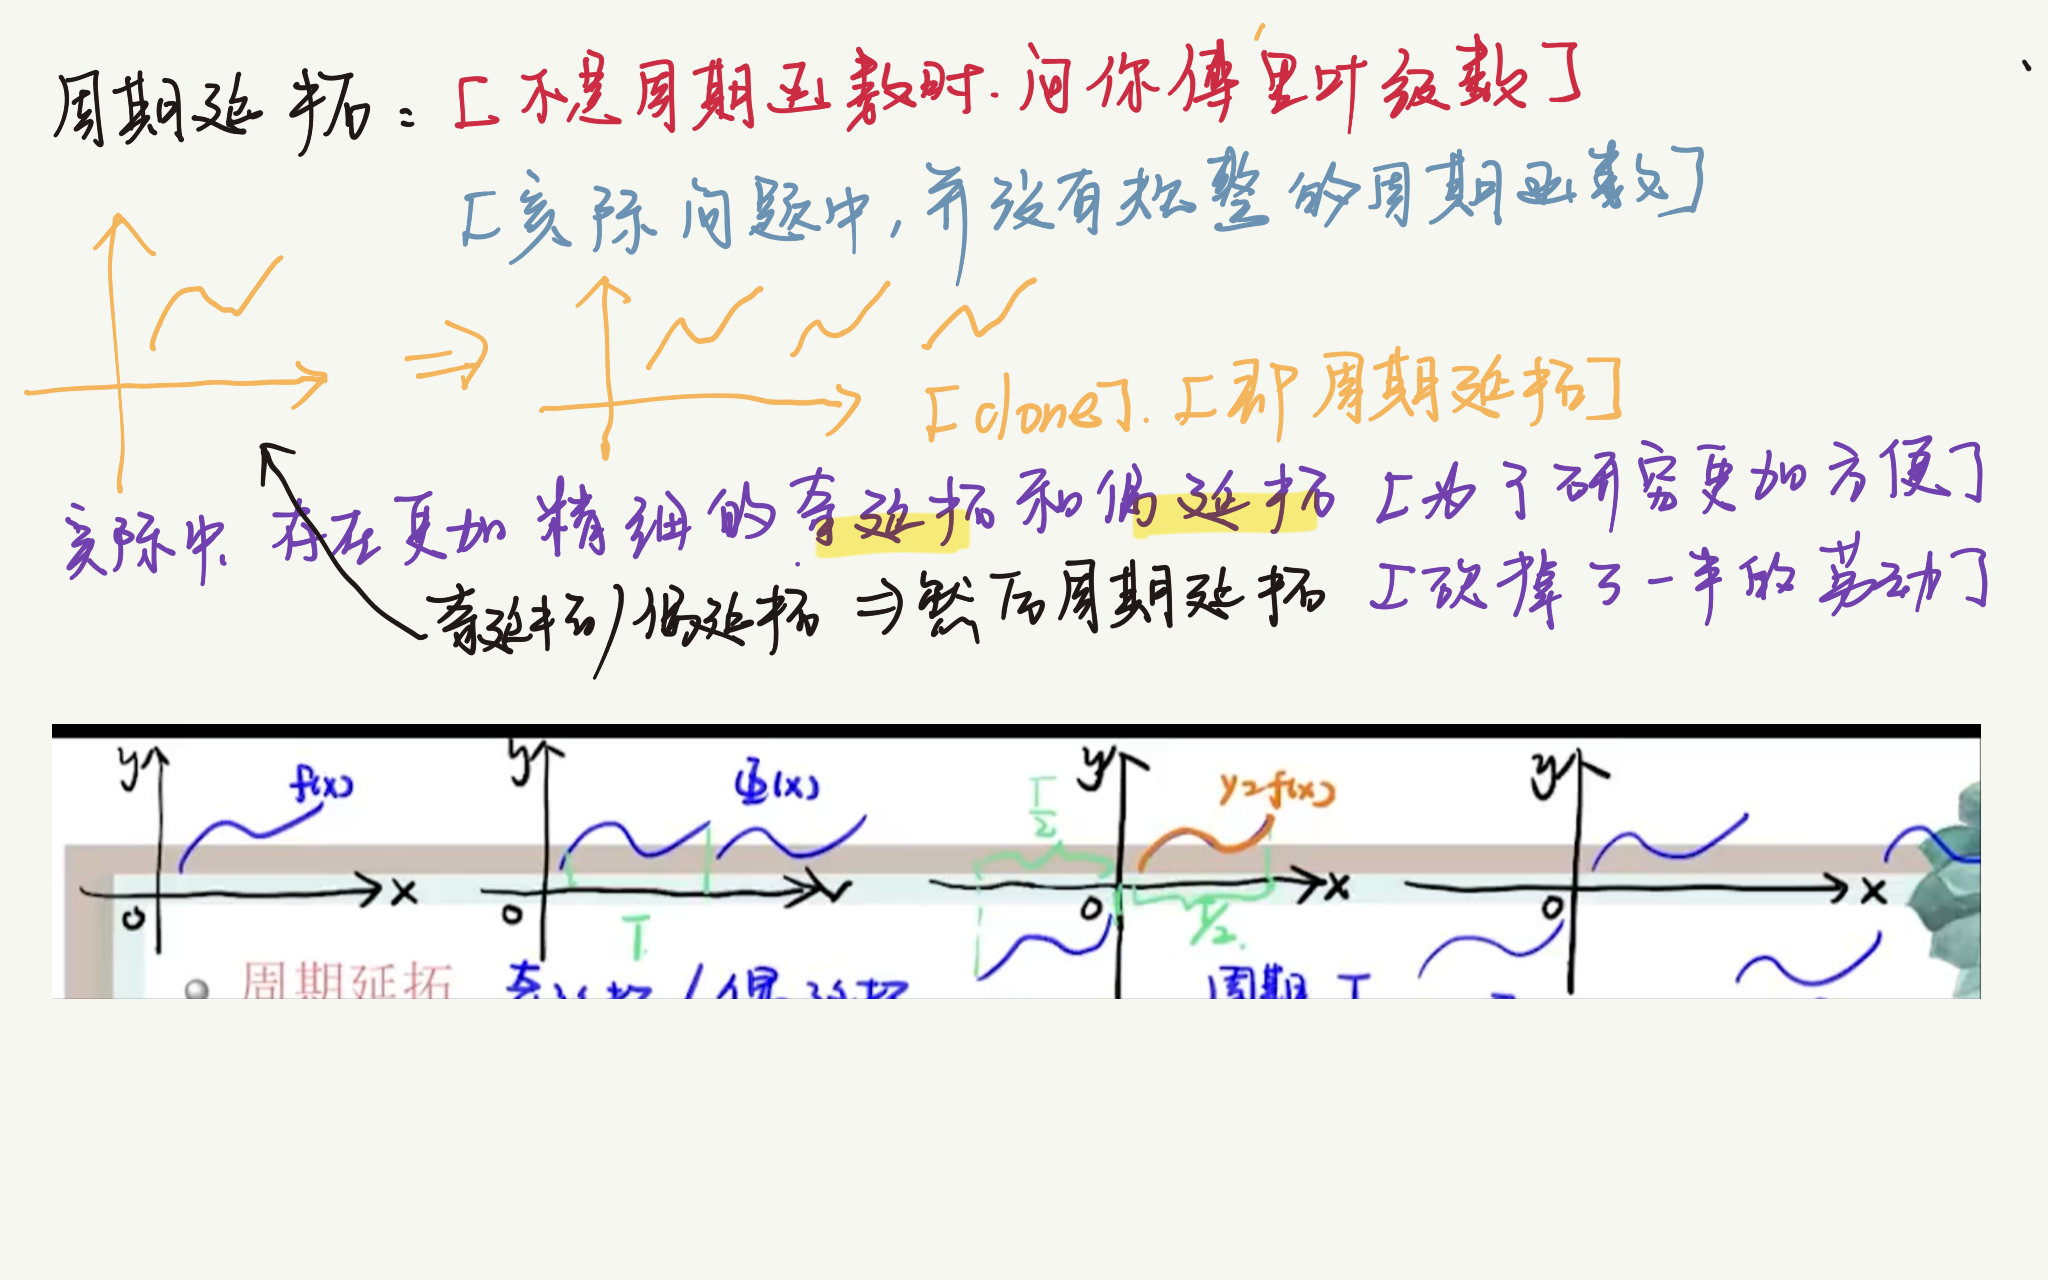 周期延拓：[不是周期函数时.问你傅里叶级数]
[实际问题中,并没有规整的周期函数]
[clone].[即周期延拓]
实际中.存在更加精细的奇延拓和偶延拓[为了研究更加方便]
奇延拓/偶延拓⇒然后周期延拓[砍掉了一半的劳动]
y f(x) x 0
y Φ(x) 0 T
T/2 y y=f(x) x 0 T/2
y x 0
周期延拓 奇延拓/偶延拓 周期 T